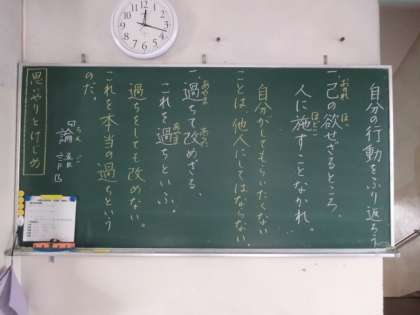 自分の行動をふり返ろう
一、己の欲せざるところ、
おのれ ほっ
人に施すことなかれ。
ほどこ
自分がしてもらいたくない
ことは、他人にしてはならない。
一、過ちて改めざる、
あやま あらた
これを過ちといふ。
あやま
過ちをしても改めない。
これを本当の過ちという
のだ。
論語
ろん ご
思いやりとけじめ
12
1
2
3
4
5
6
7
8
9
10
11